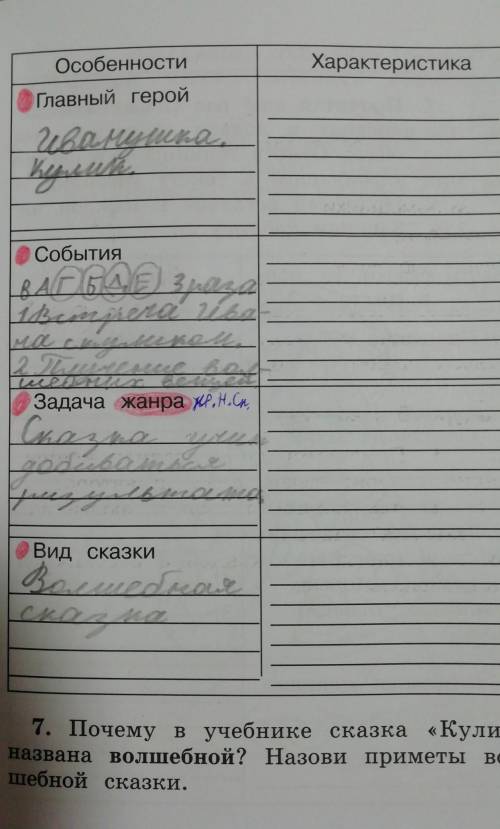 Особенности Характеристика
Главный герой
Иванушка.
Кулик.
События
В А Г Б Д Е 3 раза
1. Встреча Ива-
на с куликом.
2. Плучение вол-
шебних вещей
Задача жанра нр.Н.Ск.
Сказка учит
добиваться
результата
Вид сказки
Волшебная
сказка
7. Почему в учебнике сказка «Кули
названа волшебной? Назови приметы во
шебной сказки.